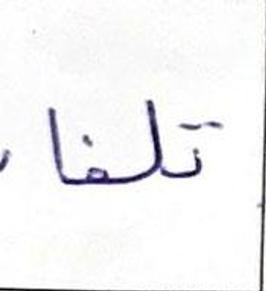 تلفا